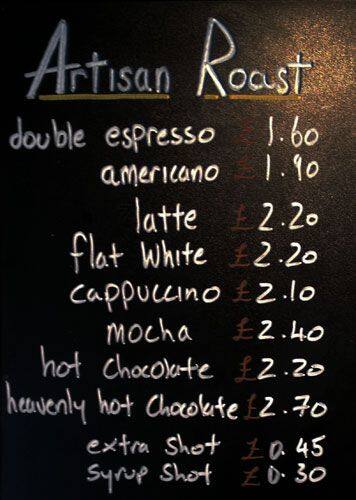 Artisan Roast
double espresso £ 1.60
americano £ 1.90
latte £ 2.20
flat White £ 2.20
cappuccino £ 2.10
mocha £ 2.40
hot Chocolate £ 2.20
heavenly hot Chocolate £ 2.70
extra shot £ 0.45
syrup shot £ 0.30